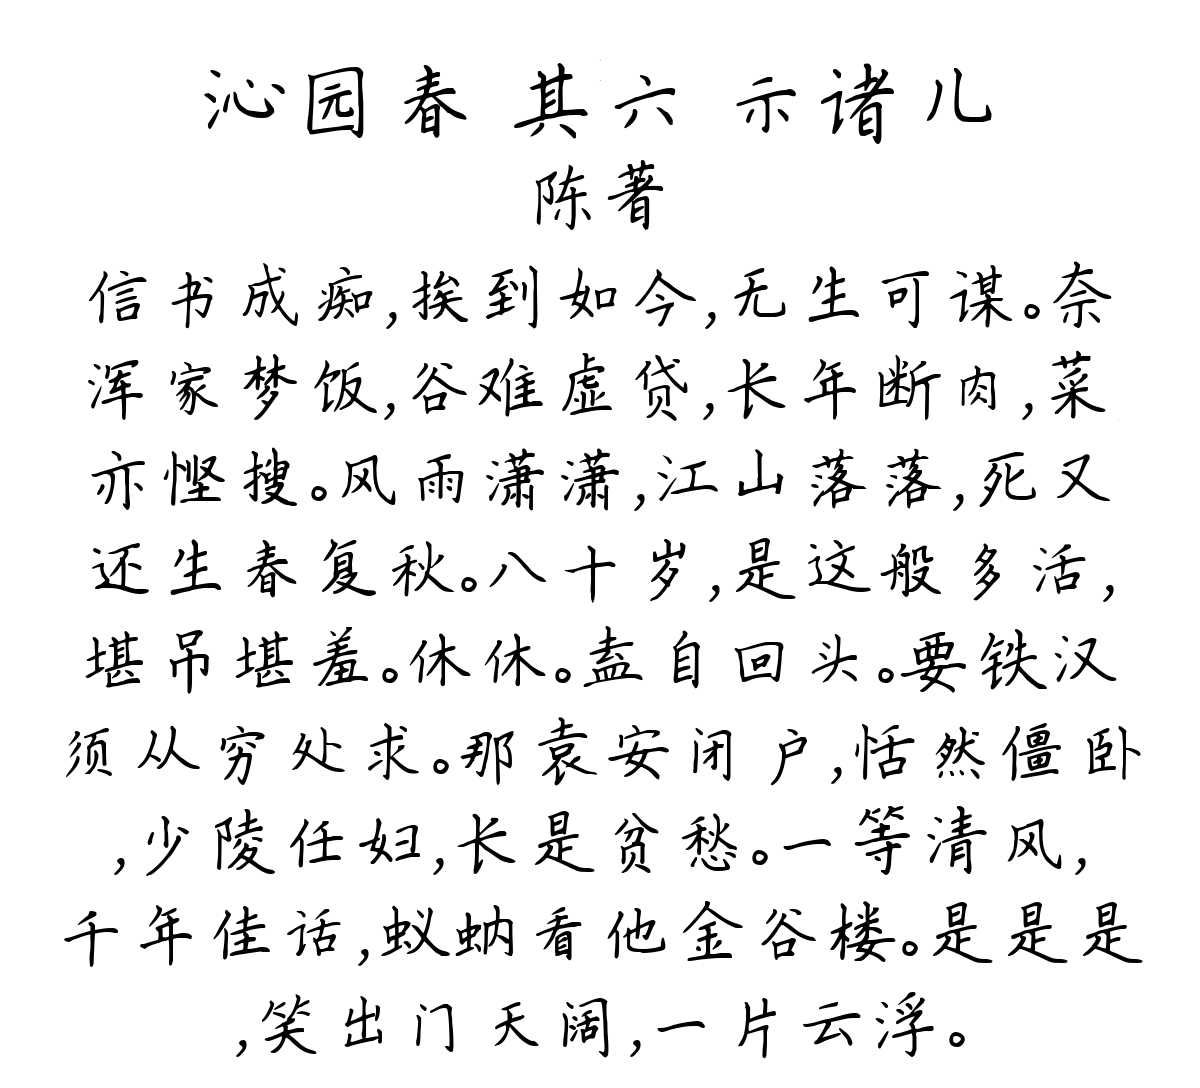 沁园春 其六 示诸儿
陈著
信书成痴,挨到如今,无生可谋。奈
浑家梦饭,谷难虚贷,长年断肉,菜
亦悭搜。风雨潇潇,江山落落,死又
还生春复秋。八十岁,是这般多活,
堪吊堪羞。休休。盍自回头。要铁汉
须从穷处求。那袁安闭户,恬然僵卧
,少陵任妇,长是贫愁。一等清风,
千年佳话,蚁蚋看他金谷楼。是是是
,笑出门天阔,一片云浮。